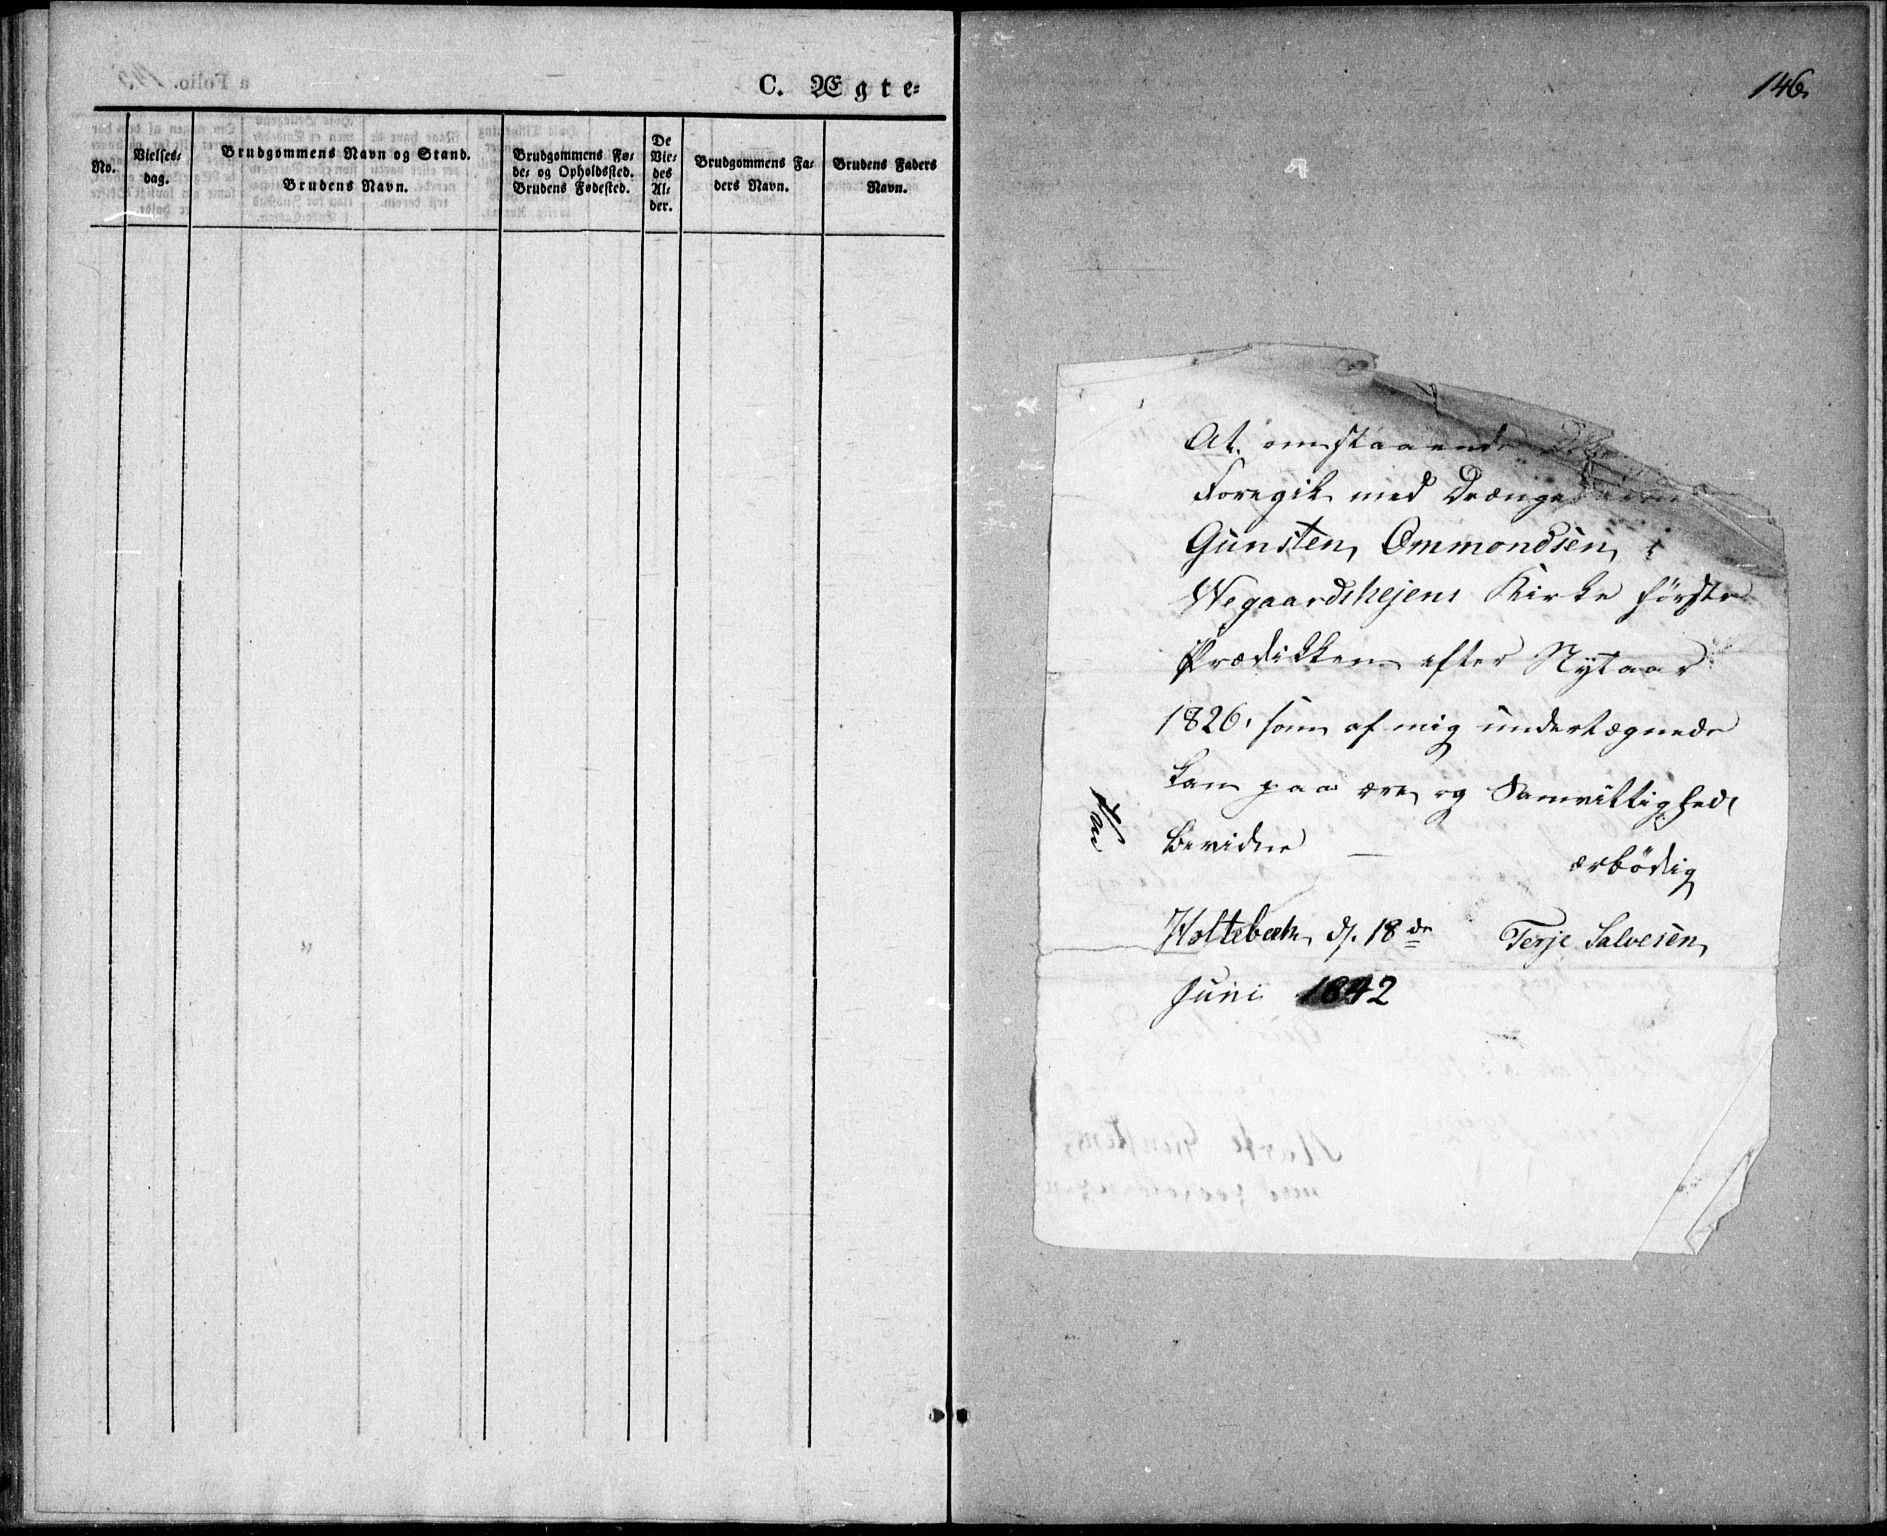 C. Ægte-
No.
Vielses-
dag.
Brudgommens Navn og Stand.
Brudens Navn.
Brudgommens Fø-
de- og Opholdssted.
Brudens Fødested.
De
Vie-
des
Al-
der.
Brudgommens Fa-
ders Navn.
Brudens Faders
Navn.
146.
At omstaaende
Foregik med Drænge
Gunsten Ommondsen i
Wegaardshejens Kirke første
Prædikken efter Nytaar
1826. som af mig undertægnede
kan paa ære og Samvittighed
Bevidne —
ærbødig
Holtebæk d. 18de Terje Salvesen
Juni 1842